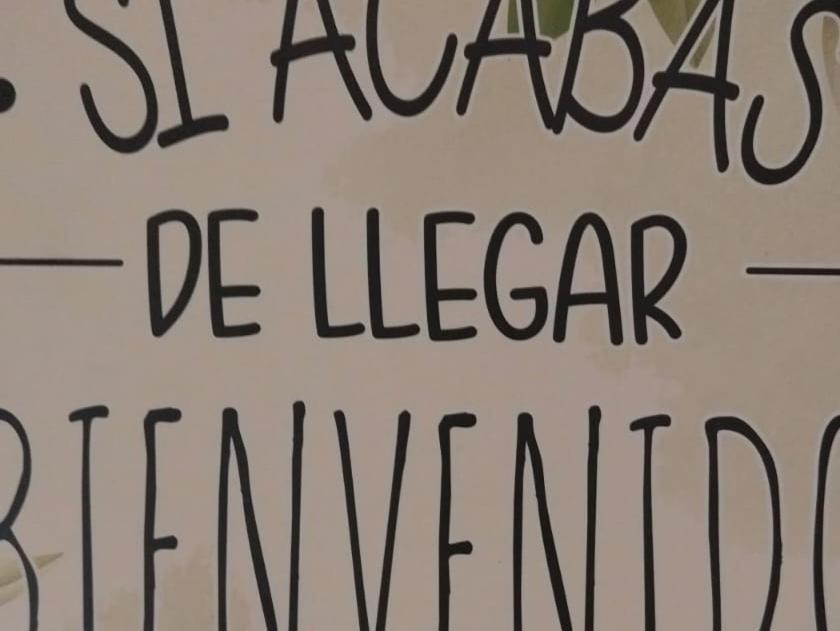 . SI ACABAS
DE LLEGAR
BIENVENIDO